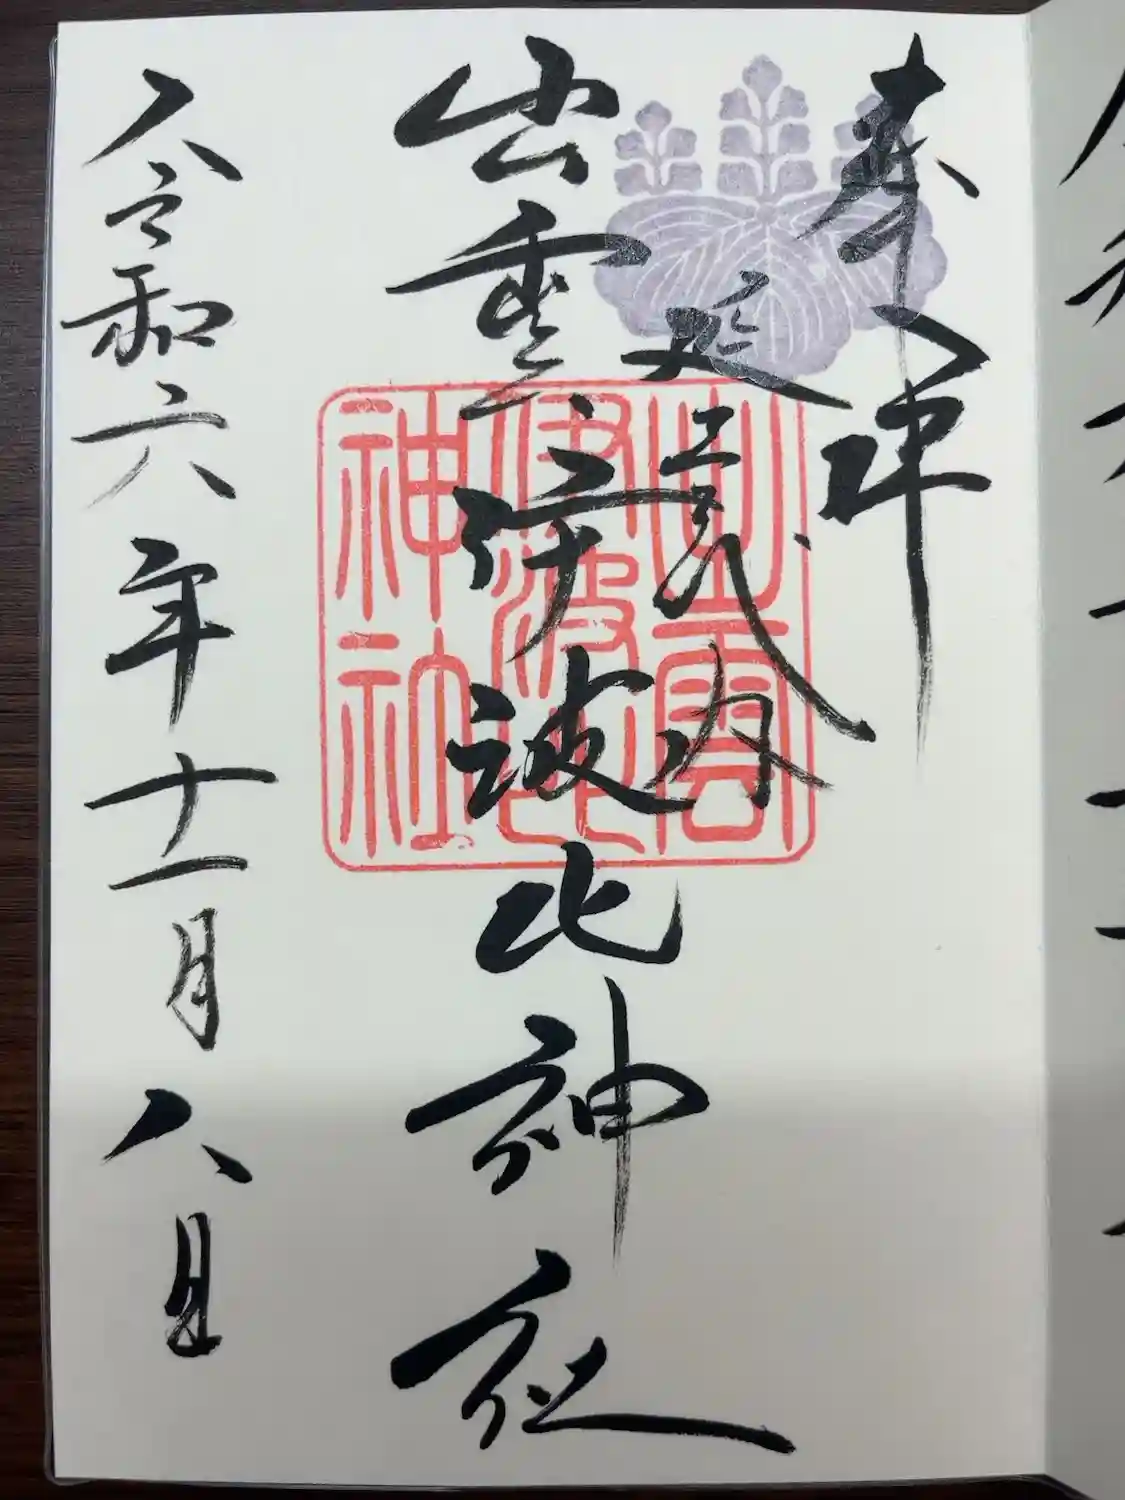 奉拝
延喜式内
出雲伊波比神社
令和六年十一月八日
出雲
伊波比
神社